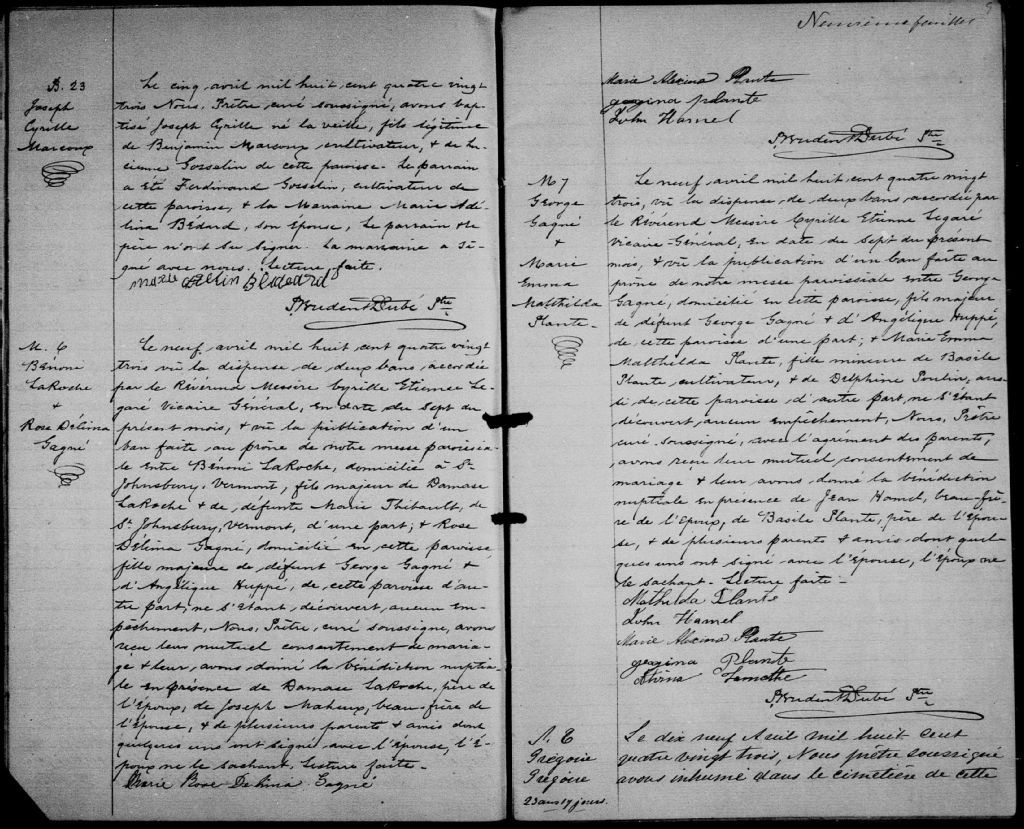 B. 23
Joseph
Cyrille
Marcoux
Le cinq avril mil huit cent quatre vingt
trois Nous, Prêtre, curé soussigné, avons bap-
tisé Joseph Cyrille né la veille, fils légitime
de Benjamin Marcoux cultivateur, & de Lu-
cienne Gosselin de cette paroisse. Le parrain
a été Ferdinand Gosselin, cultivateur de
cette paroisse, & la Marraine Marie Adé-
lina Bédard, son épouse, Le parrain & le
père n'ont su signer. La marraine a si-
gné avec nous. Lecture faite.
Marie Bedard
Prudent Dubé Ptre
M. 6
Bénoni
LaRoche
+
Rose Délima
Gagné
Le neuf avril mil huit cent quatre vingt
trois vû la dispense de deux bans, accordée
par le Révérend Messire Cyrille Etienne Le-
garé Vicaire Général, en date du Sept du
présent mois, & vû la publication d'un
ban faite au prône de notre messe paroissia-
le entre Bénoni LaRoche, domicilié à St
Johnsbury, Vermont, fils majeur de Damase
LaRoche & de, défunte Marie Thibault, de
St Johnsbury, Vermont, d'une part; & Rose
Délima Gagné, domiciliée en cette paroisse,
fille majeure de défunt George Gagné &
d'Angélique Huppé, de, cette paroisse d'au-
tre part, ne s'étant, découvert, aucun em-
pêchement, Nous, Prêtre, curé soussigné, avons
reçu leur mutuel consentement de maria-
ge & leur, avons donné la bénédiction nuptia-
le en présence de Damase LaRoche, père de
l'époux, de Joseph Maheux, beau-frère de
l'épouse, & de plusieurs parents & amis dont
quelques uns ont signé avec l'épouse, l'é-
poux ne le sachant. Lecture faite-
Marie Rose Delima Gagné
Neuvième feuillet
9
Marie Alexina Plante
Georgina Plante
John Hamel
Prudent Dubé Ptre
M 7
George
Gagné
+
Marie
Emma
Malthilda
Plante-
Le neuf avril mil huit cent quatre vingt
trois, vû la dispense de deux bans accordée par
le Révérend Messire Cyrille Etienne Legaré
Vicaire-Général, en date du sept du présent
mois, & vû la publication d'un ban faite au
prône de notre messe paroissiale entre George
Gagné, domicilié en cette paroisse, fils majeur
de défunt George Gagné & d'Angélique Huppé,
de, cette paroisse d'une part; & Marie Emma
Malthilda Plante, fille mineure de Basile
Plante cultivateur, & de Delphine Poulin, aus-
si de, cette paroisse d'autre part, ne s'étant
découvert, aucun empêchement, Nous, Prêtre
curé soussigné, avec l'agrément des parents,
avons reçu leur mutuel consentement de
mariage & leur avons donné la bénédiction
nuptiale en présence de Jean Hamel, beau-frè-
re de l'époux, de Basile Plante, père de l'épou-
se, & de plusieurs parents & amis dont quel-
ques uns ont signé avec l'épouse, l'époux ne
le sachant- Lecture faite-
Mathilda Plante
John Hamel
Marie Alexina Plante
Georgina Plante
Alvina Lamothe
Prudent Dubé Ptre
S. 8
Grégoire
Grégoire
23 ans 17 jours.
Le dix neuf Avril mil huit cent
quatre vingt trois, Nous prêtre soussigné
avons inhumé dans le cimetière de cette